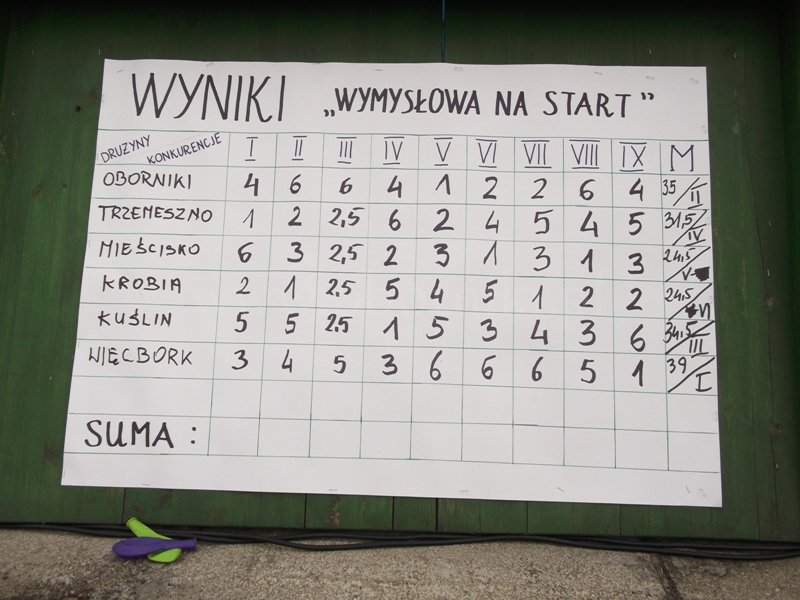 WYNIKI „WYMYSŁOWA NA START”
DRUŻYNY KONKURENCJE I II III IV V VI VII VIII IX M
OBORNIKI 4 6 6 4 1 2 2 6 4 35/II
TRZEMESZNO 1 2 2,5 6 2 4 5 4 5 31,5/IV
MIEŚCISKO 6 3 2,5 2 3 1 3 1 3 24,5/V
KROBIA 2 1 2,5 5 4 5 1 2 2 24,5/VI
KUŚLIN 5 5 2,5 1 5 3 4 3 6 34,5/III
WIĘCBORK 3 4 5 3 6 6 6 5 1 39/I
SUMA :